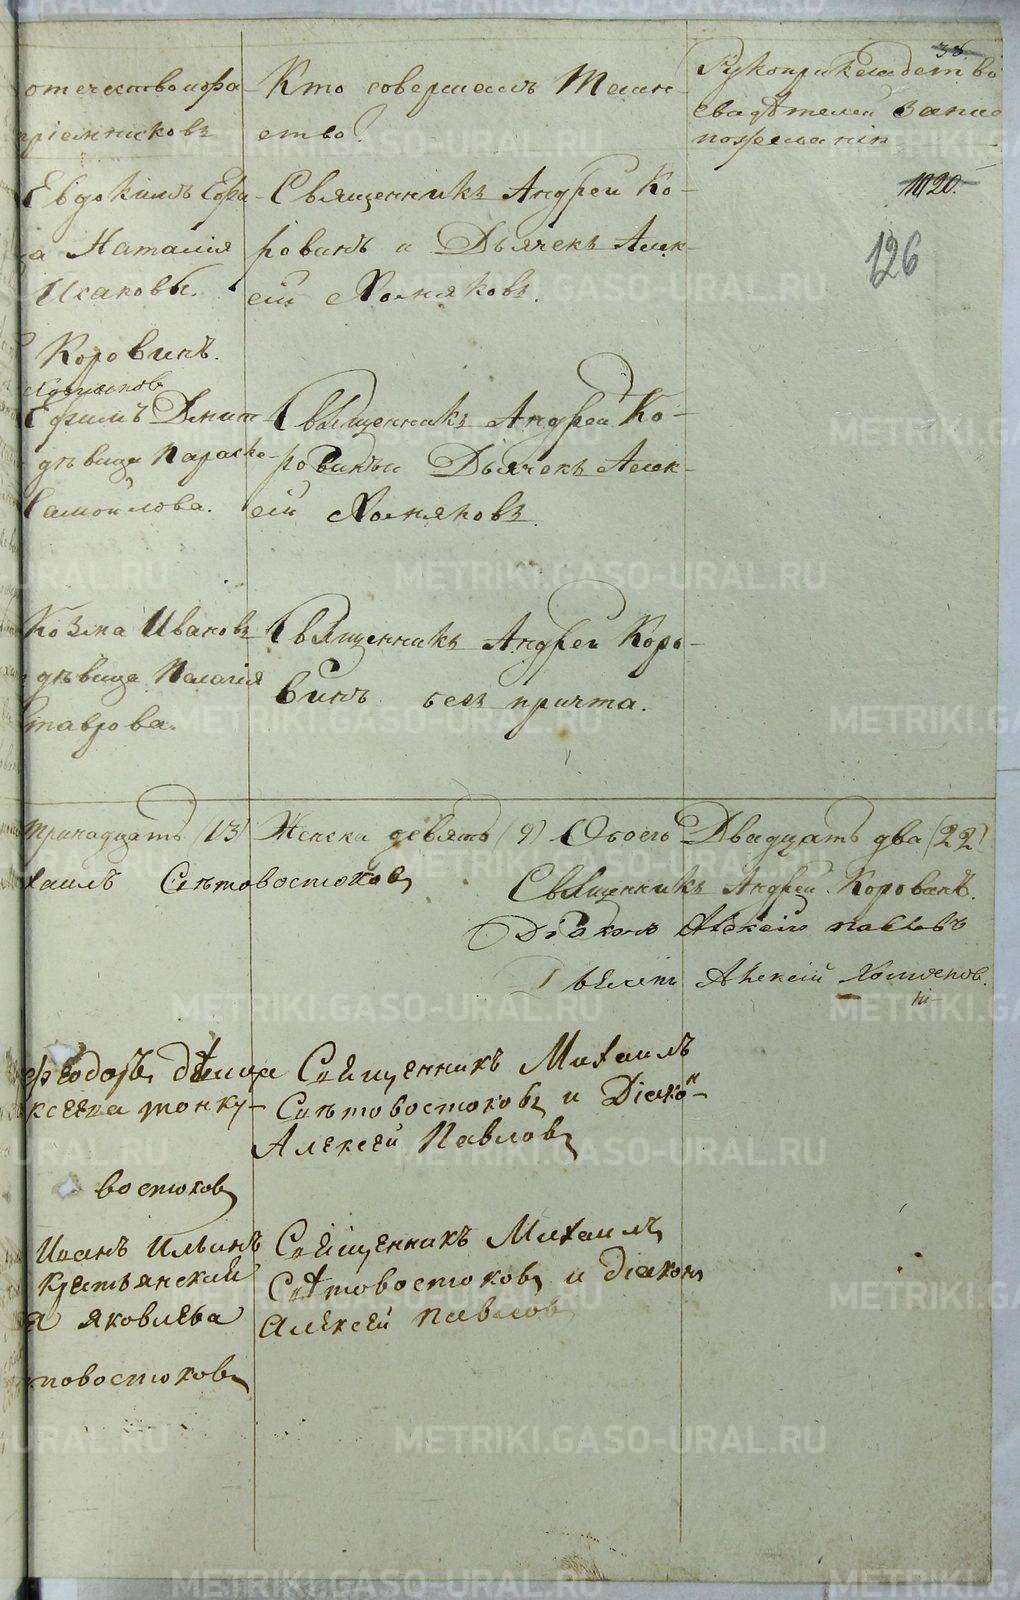 отечество и фа-
пріемниковъ
Кто совершалъ Таин-
ство?
38
Рукоприкладство
свидѣтелей запис
по желанію
1120.
126
Евдокимъ Ефи-
а Наталія
Исаковы.
Священникъ Андрей Ко-
ровинъ и Дьячекъ Алек-
ѣй Холняковъ.
Коровинъ.
Ефимъ Дмит
дѣвица Параске-
Самойлова.
Священникъ Андрей Ко-
ровинъ и Дьячекъ Алек-
ѣй Холняковъ.
Козма Ивановъ
дѣвица Палагія
Ставрова.
Священникъ Андрей Коро-
винъ безъ причта.
тринадцать (13) Женска девять (9) Обоего Двадцать два (22)
хаилъ Свѣтовостоковъ
Священникъ Андрей Коровинъ.
Діаконъ Алексѣй Павловъ
Алексѣй Холняков.
Феодоръ дѣвица
Священникъ Михаилъ
Свѣтовостоковъ и Діако-
Алексѣй Павловъ
востоковъ
Иванъ Ильинъ
Крестьянский
я Яковлева
Священникъ Михаилъ
Свѣтовостоковъ и діаконъ
Алексѣй Павловъ
товостоковъ
METRIKI.GASO-URAL.RU